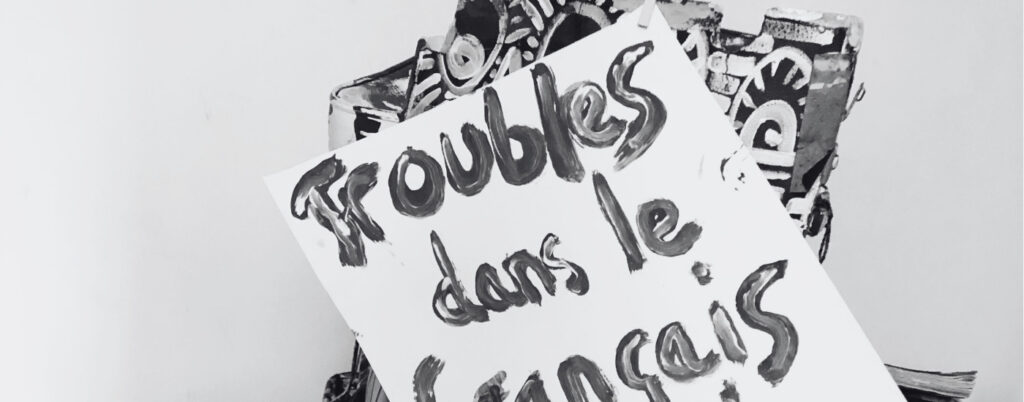 Troubles
dans le
français